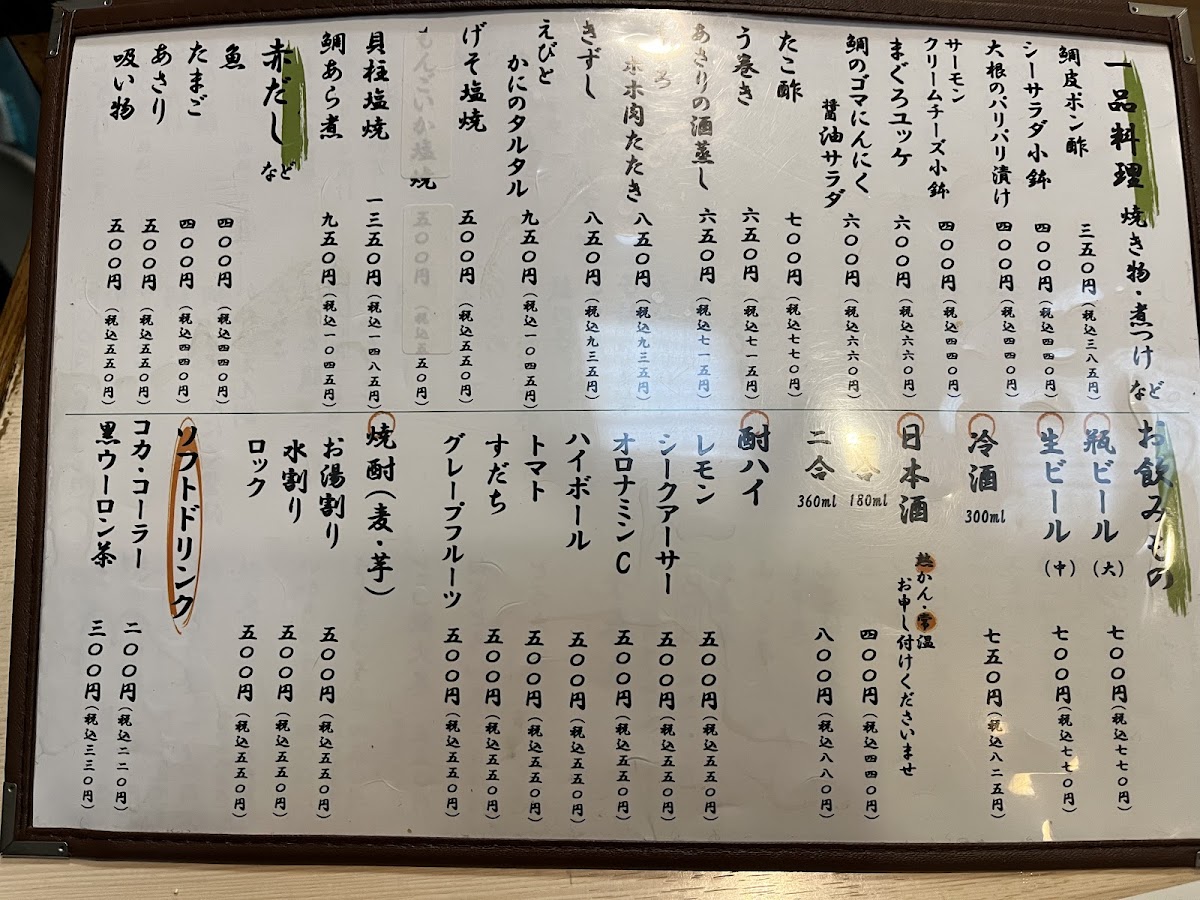 一品料理 焼き物・煮つけ など
鯛皮ポン酢 三五〇円(税込三八五円)
シーサラダ小鉢 四〇〇円(税込四四〇円)
大根のパリパリ漬け 四〇〇円(税込四四〇円)
サーモン
クリームチーズ小鉢 四〇〇円(税込四四〇円)
まぐろユッケ 六〇〇円(税込六六〇円)
鯛のゴマにんにく
醤油サラダ 六〇〇円(税込六六〇円)
たこ酢 七〇〇円(税込七七〇円)
う巻き 六五〇円(税込七一五円)
あさりの酒蒸し 六五〇円(税込七一五円)
ホホ肉たたき 八五〇円(税込九三五円)
きずし 八五〇円(税込九三五円)
えびと
かにのタルタル 九五〇円(税込一〇四五円)
げそ塩焼 五〇〇円(税込五五〇円)
もんごいか塩焼 五〇〇円(税込五五〇円)
貝柱塩焼 一三五〇円(税込一四八五円)
鯛あら煮 九五〇円(税込一〇四五円)
赤だし など
魚 四〇〇円(税込四四〇円)
たまご 四〇〇円(税込四四〇円)
あさり 五〇〇円(税込五五〇円)
吸い物 五〇〇円(税込五五〇円)
お飲みもの
瓶ビール(大) 七〇〇円(税込七七〇円)
生ビール(中) 七〇〇円(税込七七〇円)
冷酒 300ml 七五〇円(税込八二五円)
日本酒 熱かん・常温
お申し付けくださいませ
合 180ml 四〇〇円(税込四四〇円)
二合 360ml 八〇〇円(税込八八〇円)
酎ハイ
レモン 五〇〇円(税込五五〇円)
シークアーサー 五〇〇円(税込五五〇円)
オロナミンC 五〇〇円(税込五五〇円)
ハイボール 五〇〇円(税込五五〇円)
トマト 五〇〇円(税込五五〇円)
すだち 五〇〇円(税込五五〇円)
グレープフルーツ 五〇〇円(税込五五〇円)
焼酎(麦・芋)
お湯割り 五〇〇円(税込五五〇円)
水割り 五〇〇円(税込五五〇円)
ロック 五〇〇円(税込五五〇円)
ソフトドリンク
コカ・コーラー 二〇〇円(税込二二〇円)
黒ウーロン茶 三〇〇円(税込三三〇円)